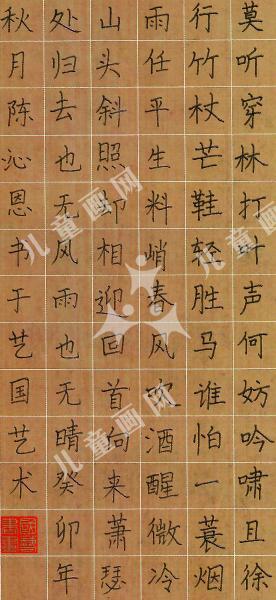 莫听穿林打叶声何妨吟啸且徐
行竹杖芒鞋轻胜马谁怕一蓑烟
雨任平生料峭春风吹酒醒微冷
山头斜照却相迎回首向来萧瑟
处归去也无风雨也无晴癸卯年
秋月陈沁恩书于艺国艺术
儿童画网
儿童画网
儿童画网
儿童画网